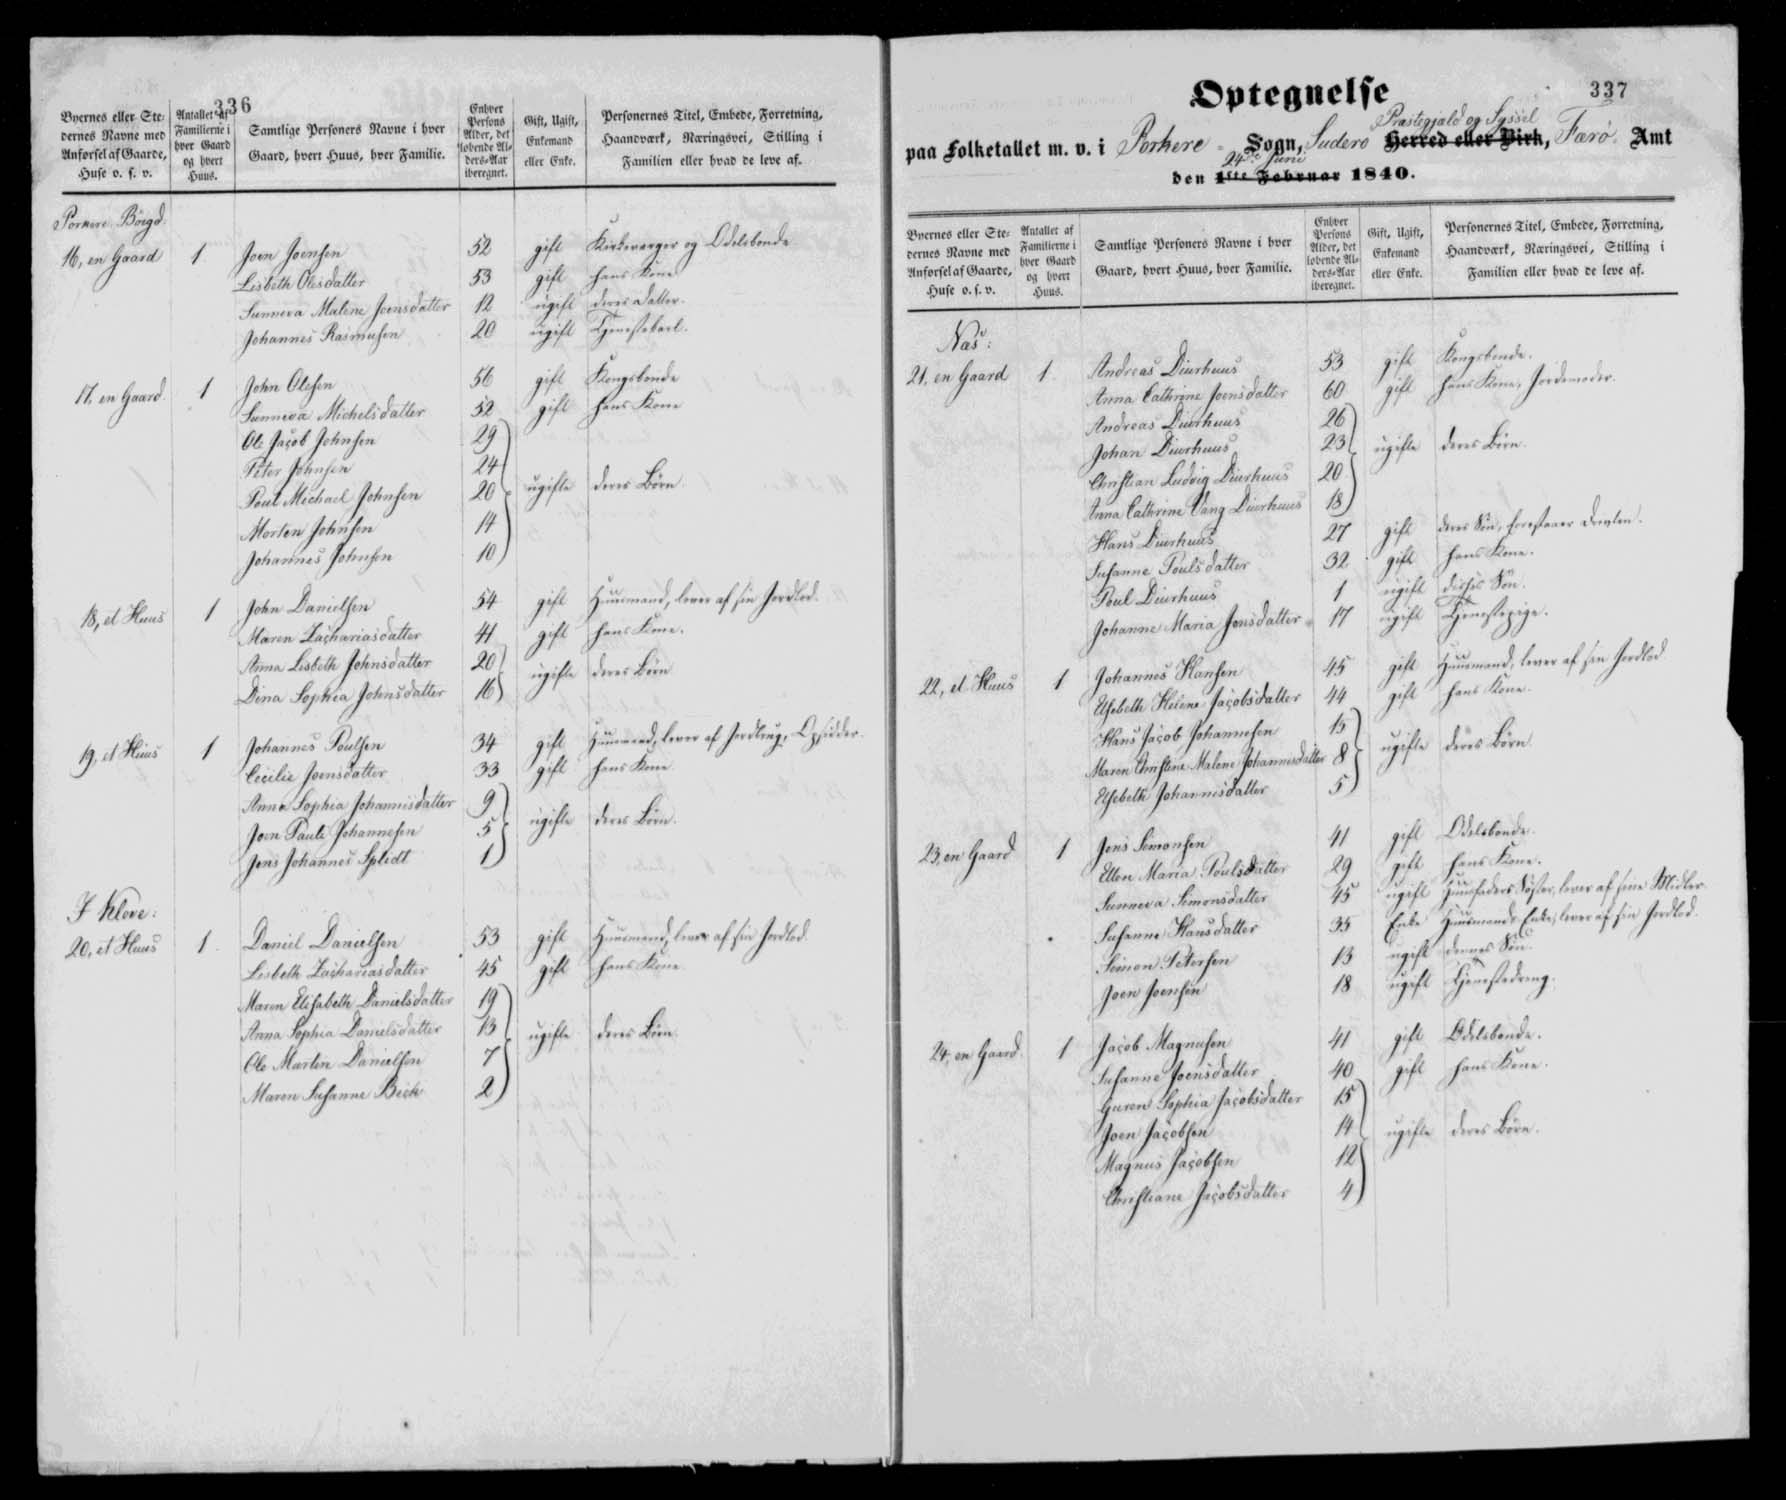 336
Byernes eller Ste-
dernes Navne med
Anførsel af Gaarde,
Huse o. s. v.
Antallet af
Familierne i
hver Gaard
og hvert
Huus.
Samtlige Personers Navne i hver
Gaard, hvert Huus, hver Familie.
Enhver
Persons
Alder, det
løbende Al-
ders-Aar
iberegnet.
Gift, Ugift,
Enkemand
eller Enke.
Personernes Titel, Embede, Forretning,
Haandværk, Næringsvei, Stilling i
Familien eller hvad de leve af.
Porkere Böigd.
16, en Gaard 1. Joen Joensen 52 gift Kirkeværger og Odelsbonde
Lisbeth Olesdatter 53 gift hans Kone
Sunneva Malene Joensdatter 12 ugift deres Datter.
Johannes Rasmussen 20 ugift Tjenestekarl.
17, en Gaard. 1 John Olesen 56 gift Kongsbonde
Sunneva Michelsdatter 52 gift hans Kone
Ole Jacob Johnsen 29
Peter Johnsen 24
Poul Michael Johnsen 20 ugifte deres Börn.
Morten Johnsen 14
Johannes Johnsen 10
18, et Huus 1 John Danielsen 54 gift Huusmand, lever af sin Jordlod.
Maren Zachariasdatter 41 gift hans Kone.
Anna Lisbeth Johnsdatter 20 ugifte deres Börn
Dina Sophia Johnsdatter 16
19, et Huus 1 Johannes Poulsen 34 gift Huusmand, lever af Jordbrug, Opsidder.
Cecilie Joensdatter 33 gift hans Kone
Anna Sophia Johannisdatter 9
Joen Pauli Johannesen 5 ugifte deres Börn.
Jens Johannes Splidt 1
I Klove:
20, et Huus 1. Daniel Danielsen 53 gift Huusmand, lever af sin Jordlod.
Lisbeth Zachariasdatter 45 gift hans Kone
Maren Elisabeth Danielsdatter 19
Anna Sophia Danielsdatter 13 ugifte deres Börn.
Ole Martin Danielsen 7
Maren Susanne Beck 2
337
Optegnelse
Præstegjæld og Syssel
paa Folketallet m. v. i Porkere Sogn, Suderö Herred eller Birk, Færö Amt
24de Juni
den 1ste Februar 1840.
Byernes eller Ste-
dernes Navne med
Anførsel af Gaarde,
Huse o. s. v.
Antallet af
Familierne i
hver Gaard
og hvert
Huus.
Samtlige Personers Navne i hver
Gaard, hvert Huus, hver Familie.
Enhver
Persons
Alder, det
løbende Al-
ders-Aar
iberegnet.
Gift, Ugift,
Enkemand
eller Enke.
Personernes Titel, Embede, Forretning,
Haandværk, Næringsvei, Stilling i
Familien eller hvad de leve af.
Næs:
21, en Gaard 1. Andreas Diurhuus 53 gift Kongsbonde.
Anna Cathrine Joensdatter 60 gift hans Kone, Jordemoder.
Andreas Diurhuus 26
Johan Diurhuus 23 ugifte deres Börn.
Christian Ludvig Diurhuus 20
Anna Cathrine Vang Diurhuus 18
Hans Diurhuus 27 gift deres Sön, forestaaer Avlen.
Susanne Poulsdatter 32 gift hans Kone.
Poul Diurhuus 1 ugift disses Sön.
Johanne Maria Jensdatter 17 ugift Tjenestepige.
22, et Huus 1 Johannes Hansen 45 gift Huusmand, lever af sin Jordlod
Elsebeth Helene Jacobsdatter 44 gift hans Kone.
Hans Jacob Johannesen 15
Maren Christine Malene Johannesdatter 8 ugifte deres Börn
Elsebeth Johannisdatter 5
23, en Gaard 1 Jens Simonsen 41 gift Odelsbonde.
Ellen Maria Poulsdatter 29 gift hans Kone.
Sunneva Simonsdatter 45 ugift Huusfaders Söster, lever af sine Midler.
Susanne Hansdatter 35 Enke Huusmands Enke, lever af sin Jordlod.
Simon Petersen 13 ugift dennes Sön.
Joen Joensen 18 ugift Tjenestedreng.
24, en Gaard. 1 Jacob Magnusen 41 gift Odelsbonde.
Susanne Joensdatter 40 gift hans Kone.
Guren Sophia Jacobsdatter 15
Joen Jacobsen 14 ugifte deres Börn.
Magnus Jacobsen 12
Christiane Jacobsdatter 4